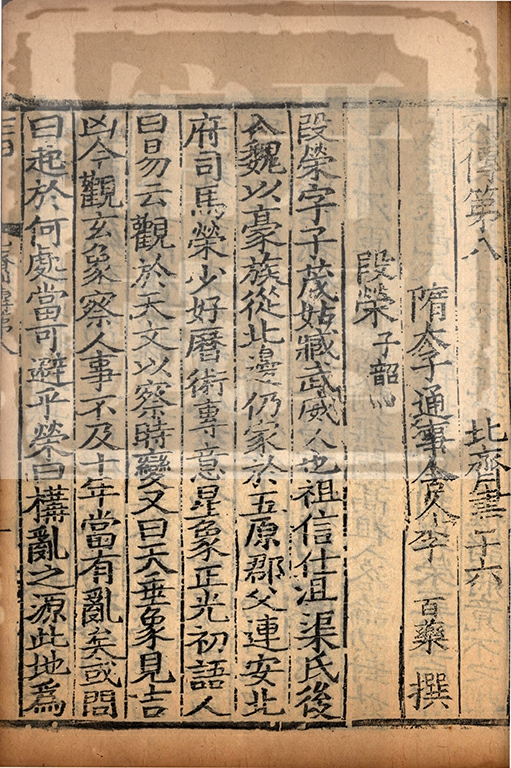 列傳第八
北齊書十六
隋太子通事舍人李百藥撰
段榮 子韶
段榮字子茂姑臧武威人也祖信仕沮渠氏後
入魏以豪族徙北邊仍家於五原郡父連安北
府司馬榮少好曆術專意星象正光初語人
曰易云觀於天文以察時變又曰天垂象見吉
凶今觀玄象察人事不及十年當有亂矣或問
曰起於何處當可避乎榮曰構亂之源此地爲